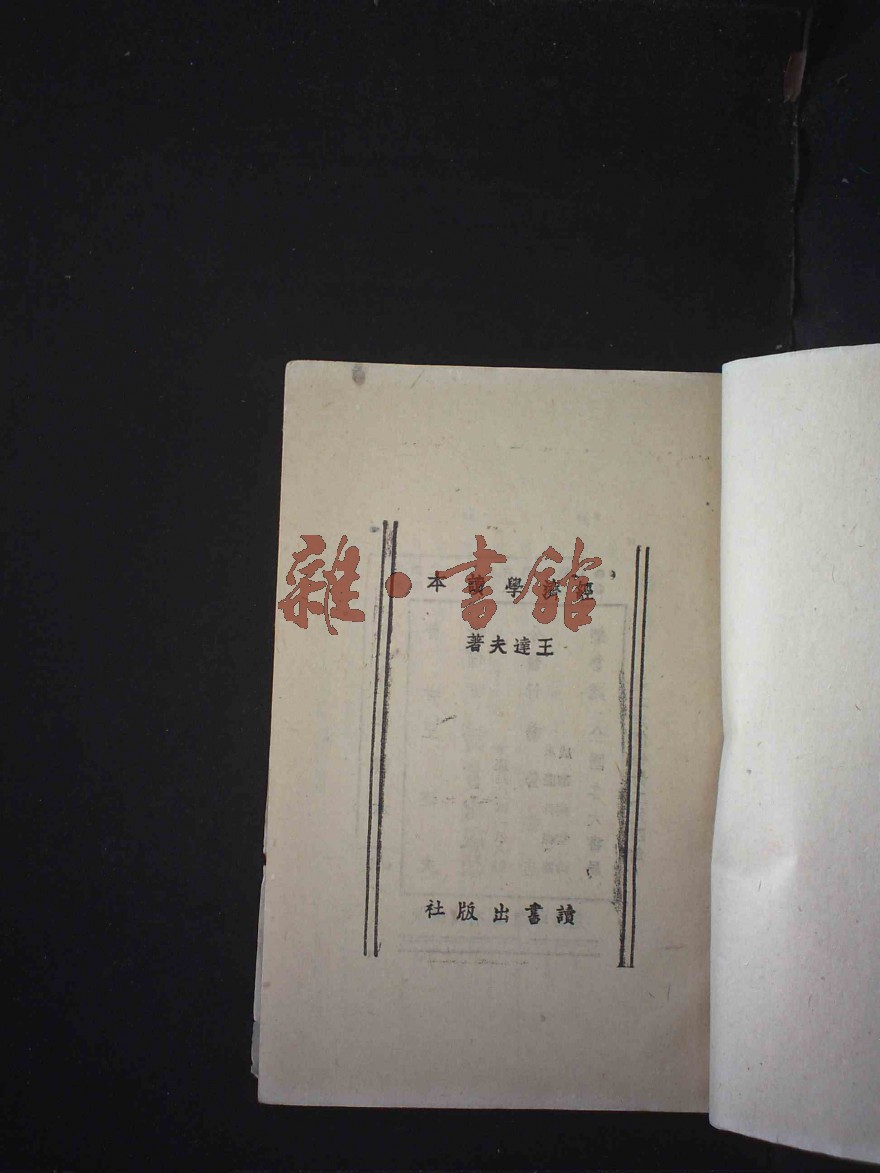 經濟學讀本
王達夫著
讀書出版社
雜·書館